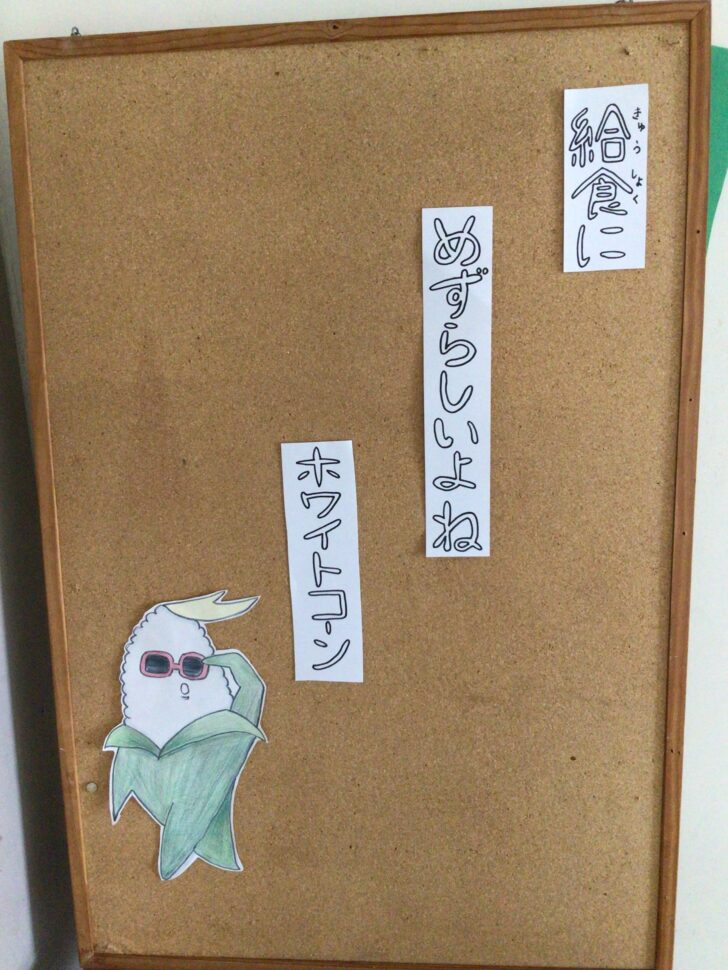 給食に
きゅうしょく
めずらしいよね
ホワイトコーン